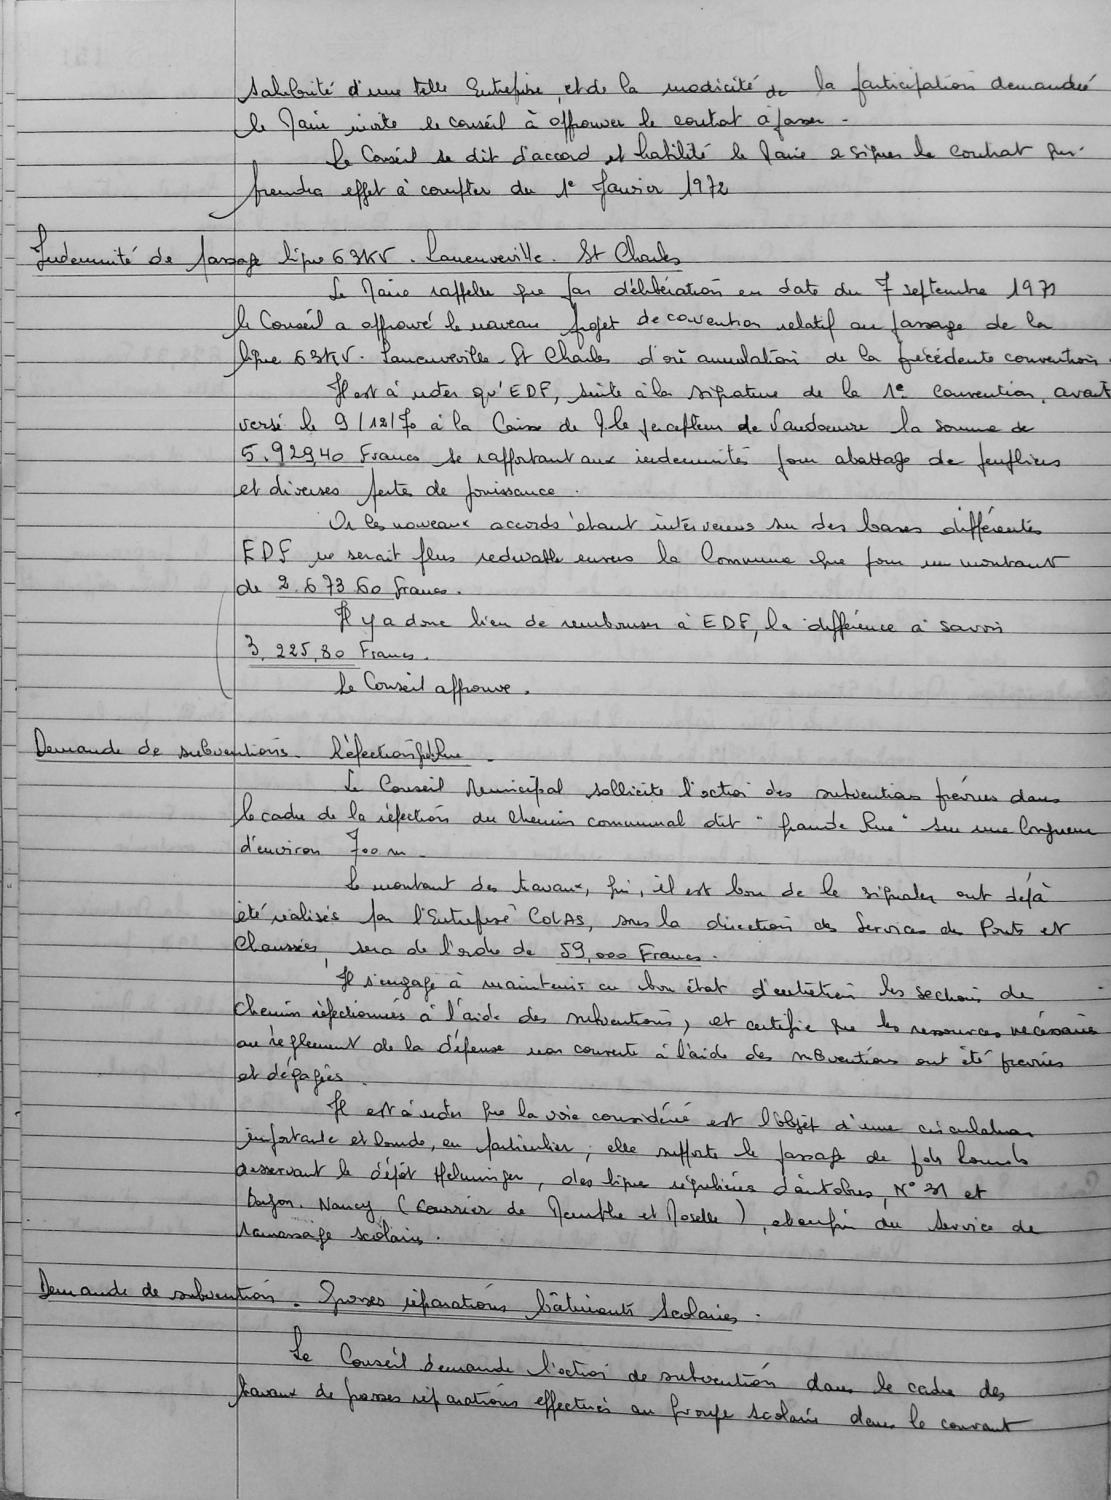 salubrité d'une telle Entreprise, et de la modicité de la participation demandée
le Maire invite le conseil à approuver le contrat à passer -
Le Conseil se dit d'accord et habilité le Maire à signer le contrat qui
prendra effet à compter du 1e Janvier 1972
Indemnité de passage ligne 63KV. Laneuveville. St Charles
Le Maire rappelle que par délibération en date du 7 septembre 1971
le Conseil a approuvé le nouveau projet de convention relatif au passage de la
ligne 63KV. Laneuveville - St Charles d'où annulation de la précédente convention.
Il est à noter qu'EDF, suite à la signature de la 1e convention, avait
versé le 9/12/70 à la Caisse de M. le percepteur de Vandoeuvre la somme de
5.929,40 Francs se rapportant aux indemnités pour abattage de peupliers
et diverses perte de jouissance.
Or les nouveaux accords étant intervenus sur des bases différentes
EDF ne serait plus redevable envers la Commune que pour un montant
de 2.673.60 francs.
Il y a donc lieu de rembourser à EDF, la différence à savoir
3.225,80 Francs.
Le Conseil approuve.
Demande de subventions. Réfection gde Rue -
Le Conseil Municipal sollicite l'octroi des subventions prévues dans
le cadre de la réfection du Chemin communal dit "grande Rue" sur une longueur
d'environ 700 m -
Le montant des travaux, qui, il est bon de le signaler ont déjà
été réalisés par l'Entreprise COLAS, sous la direction des Services des Ponts et
Chaussées, sera de l'ordre de 59,000 Francs.
Il s'engage à maintenir en bon état d'entretien les sections de
Chemin réfectionnées à l'aide des subventions, et certifie que les ressources nécessaires
au règlement de la dépense non couverte à l'aide des subventions ont été prévues
et dégagées.
Il est à noter que la voie considéré est l'objet d'une circulation
importante et lourde, en particulier, elle supporte le passage de poids lourds
desservant le dépôt Helminger, des ligne régulières d'autobus, N° 31 et
Bayon. Nancy (Courrier de Meurthe et Moselle), et enfin du Service de
ramassage scolaire.
Demande de subvention. Grosses réparations bâtiments Scolaires -
Le Conseil demande l'octroi de subvention dans le cadre des
travaux de grosses réparations effectués au groupe scolaire dans le courant